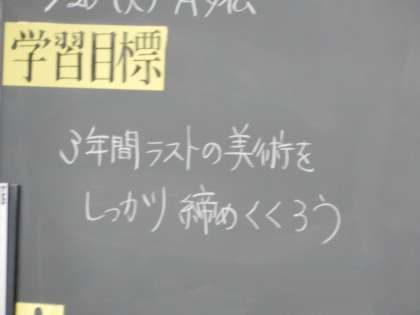 学習目標
3年間ラストの美術を
しっかり締めくくろう